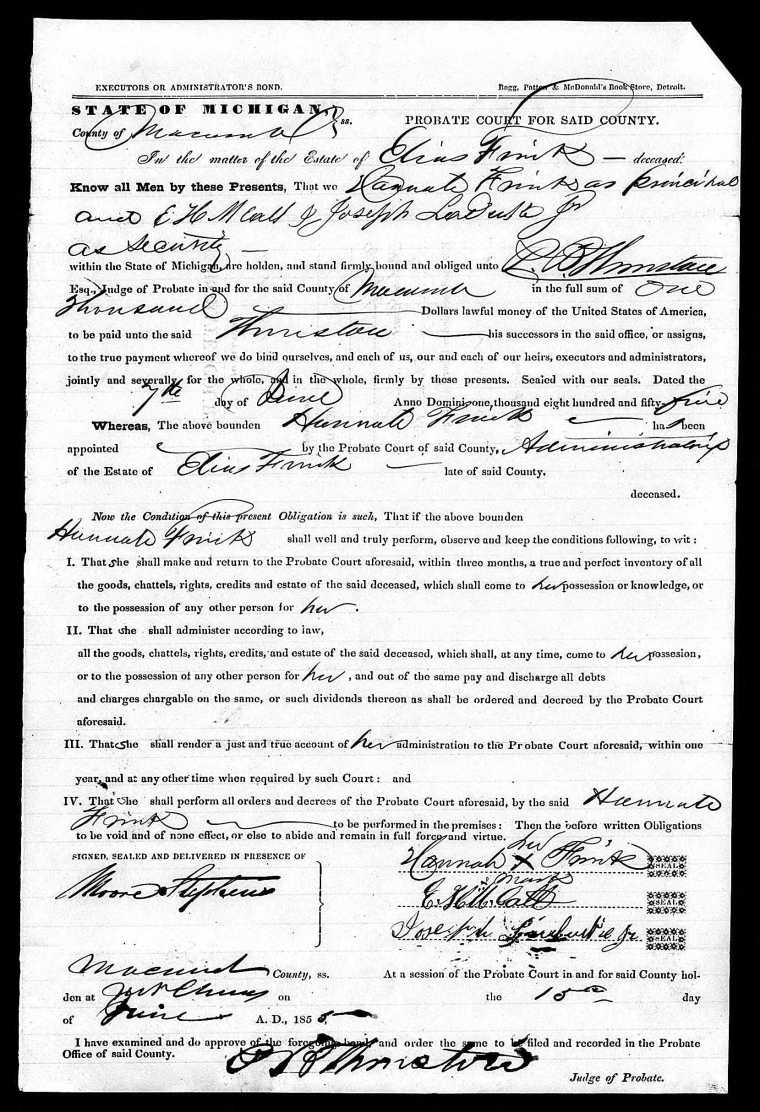 EXECUTORS OR ADMINISTRATOR'S BOND. Bagg, Patton & McDonald's Book Store, Detroit.
STATE OF MICHIGAN, ss.
County of Macomb PROBATE COURT FOR SAID COUNTY.
In the matter of the Estate of Elias Frink — deceased:
Know all Men by these Presents, That we Hannah Frink as principal
and E H McCall & Joseph Jr
as security —
within the State of Michigan, are holden, and stand firmly bound and obliged unto P. B. Thurston
Esq., Judge of Probate in and for the said County of Macomb in the full sum of One
Thousand Dollars lawful money of the United States of America,
to be paid unto the said Thurston his successors in the said office, or assigns,
to the true payment whereof we do bind ourselves, and each of us, our and each of our heirs, executors and administrators,
jointly and severally, for the whole, and in the whole, firmly by these presents. Sealed with our seals. Dated the
7th day of June Anno Domini one thousand eight hundred and fifty five
Whereas, The above bounden Hannah Frink has been
appointed by the Probate Court of said County, Administratrix
of the Estate of Elias Frink — late of said County.
deceased.
Now the Condition of this present Obligation is such, That if the above bounden
Hannah Frink shall well and truly perform, observe and keep the conditions following, to wit:
I. That she shall make and return to the Probate Court aforesaid, within three months, a true and perfect inventory of all
the goods, chattels, rights, credits and estate of the said deceased, which shall come to her possession or knowledge, or
to the possession of any other person for her.
II. That she shall administer according to law,
all the goods, chattels, rights, credits, and estate of the said deceased, which shall, at any time, come to her possesion,
or to the possession of any other person for her, and out of the same pay and discharge all debts
and charges chargable on the same, or such dividends thereon as shall be ordered and decreed by the Probate Court
aforesaid.
III. That she shall render a just and true account of her administration to the Probate Court aforesaid, within one
year, and at any other time when required by such Court: and
IV. That she shall perform all orders and decrees of the Probate Court aforesaid, by the said Hannah
Frink to be performed in the premises: Then the before written Obligations
to be void and of none effect, or else to abide and remain in full force and virtue.
SIGNED, SEALED AND DELIVERED IN PRESENCE OF
her
Hannah X Frink SEAL
mark
Moore Stephens
E. H. McCall SEAL
Joseph Jr SEAL
Macomb County, ss. At a session of the Probate Court in and for said County hol-
den at Mt Clemens on the 15th day
of June A. D., 1855
I have examined and do approve of the foregoing bond, and order the same to be filed and recorded in the Probate
Office of said County. P B Thurston
Judge of Probate.